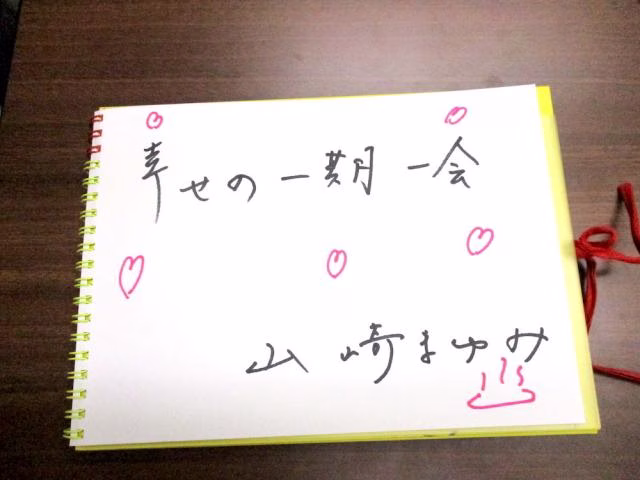 幸せの一期一会
山崎まゆみ